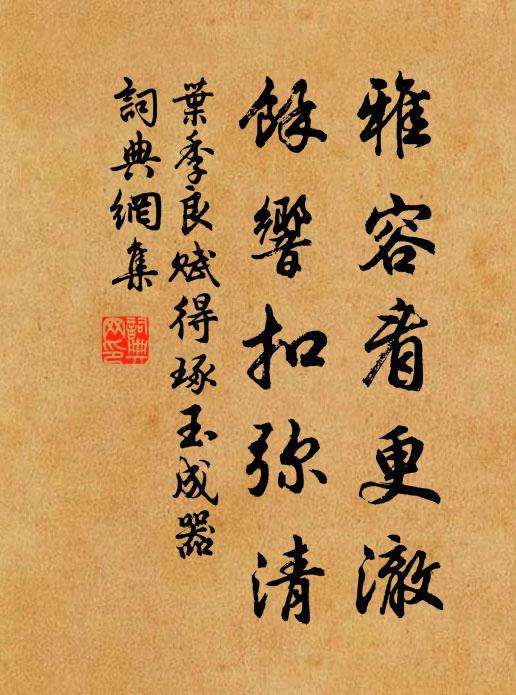 雅容看更澈
餘響扣弥清
葉季良賦得琢玉成器
詞典網集
詞典網印